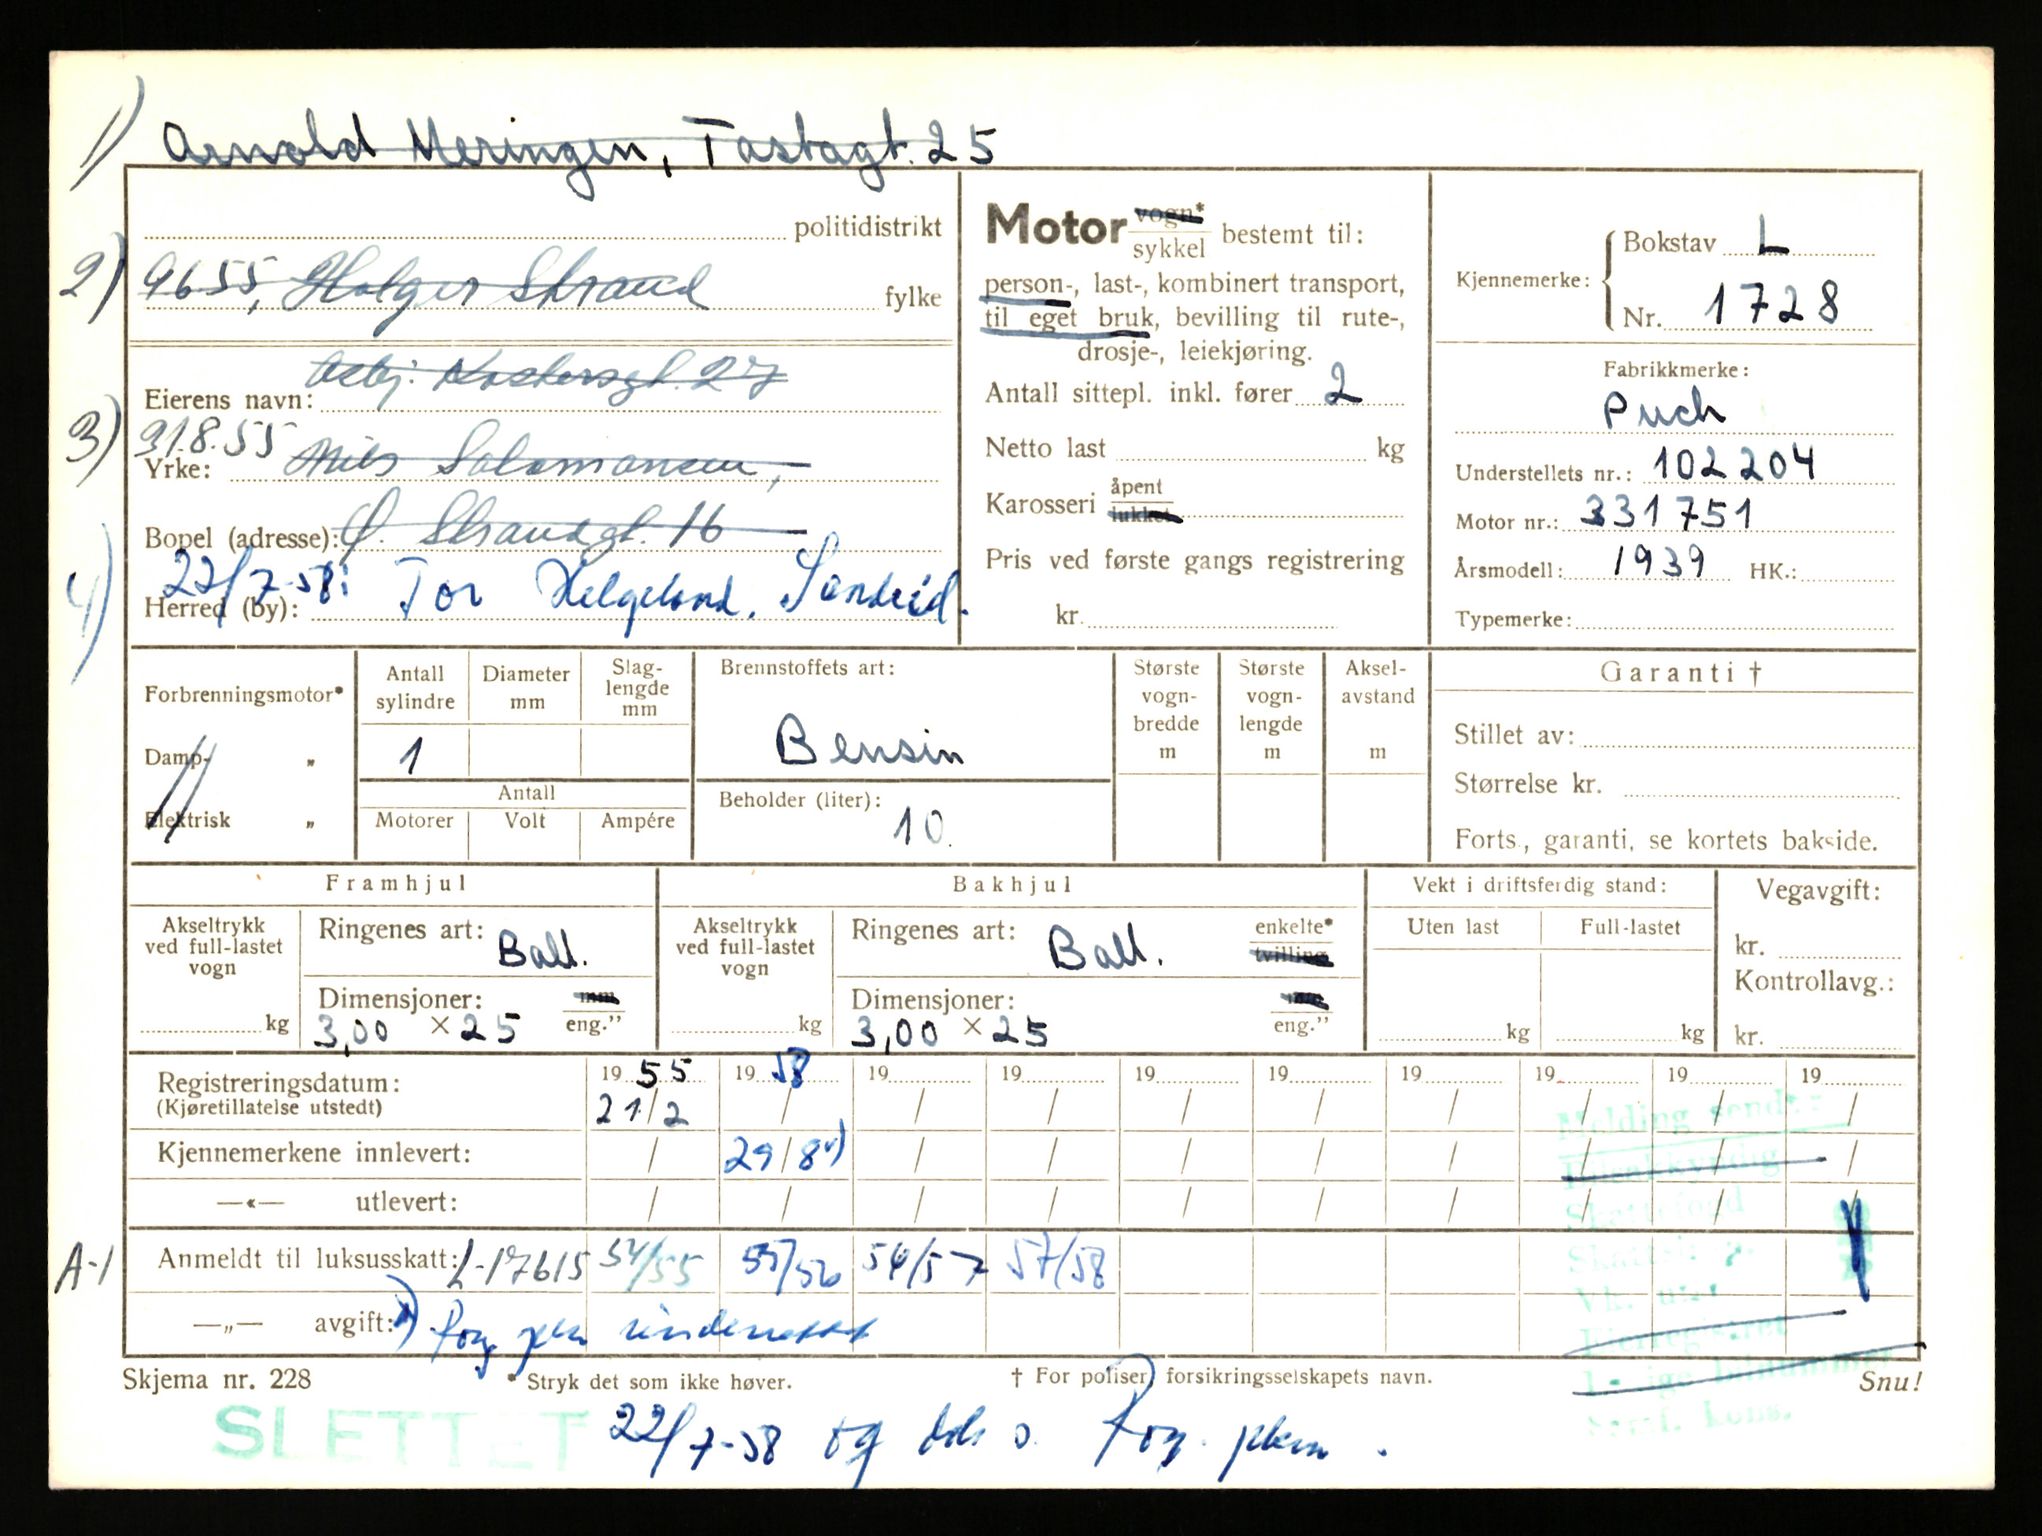 1) Arnold Meringen, Tastagt. 25
politidistrikt
2) 9655, Holger Strand fylke
Asbj. Klostersgt. 27
Eierens navn:
3) 31.8.55 Nils Salamonsen,
Yrke:
Ø. Strandgt. 16
Bopel (adresse):
4) 22/7-58: Tor Helgeland, Sandeid.
Herred (by):
Motor vogn* sykkel bestemt til:
person-, last-, kombinert transport,
til eget bruk, bevilling til rute-,
drosje-, leiekjøring.
Antall sittepl. inkl. fører 2
Netto last kg
Karosseri åpent lukket
Pris ved første gangs registrering
kr.
Kjennemerke: Bokstav L
Nr. 1728
Fabrikkmerke:
Puch
Understellets nr.: 102204
Motor nr.: 331751
Årsmodell: 1939 HK.:
Typemerke:
Forbrenningsmotor*
Damp- „
Elektrisk „
Antall sylindre
Diameter mm
Slag-lengde mm
1
Antall
Motorer Volt Ampére
Brennstoffets art:
Bensin
Beholder (liter):
10
Største vogn-bredde m
Største vogn-lengde m
Aksel-avstand m
Garanti †
Stillet av:
Størrelse kr.
Forts., garanti, se kortets bakside.
Framhjul
Akseltrykk ved full-lastet vogn
kg
Ringenes art: Ball.
Dimensjoner: mm eng."
3,00 × 25
Bakhjul
Akseltrykk ved full-lastet vogn
kg
Ringenes art: Ball. enkelte* tvilling
Dimensjoner: mm eng."
3,00 × 25
Vekt i driftsferdig stand:
Uten last Full-lastet
kg kg
Vegavgift:
kr.
Kontrollavg.:
kr.
Registreringsdatum: 19 55 19 58 19 19 19 19 19 19 19 19
(Kjøretillatelse utstedt) 21/2 / / / / / / / / /
Kjennemerkene innlevert: / 29/8 / / / / / / / /
—«— utlevert: / / / / / / / / / /
A-1 Anmeldt til luksusskatt: L-17615 54/55 55/56 56/57 57/58
—„— avgift:
Melding sendt:
Bilsakkyndig
Skattefogd
Skjema nr. 228
* Stryk det som ikke høver.
† For poliser forsikringsselskapets navn.
Snu!
SLETTET 22/7-58 og